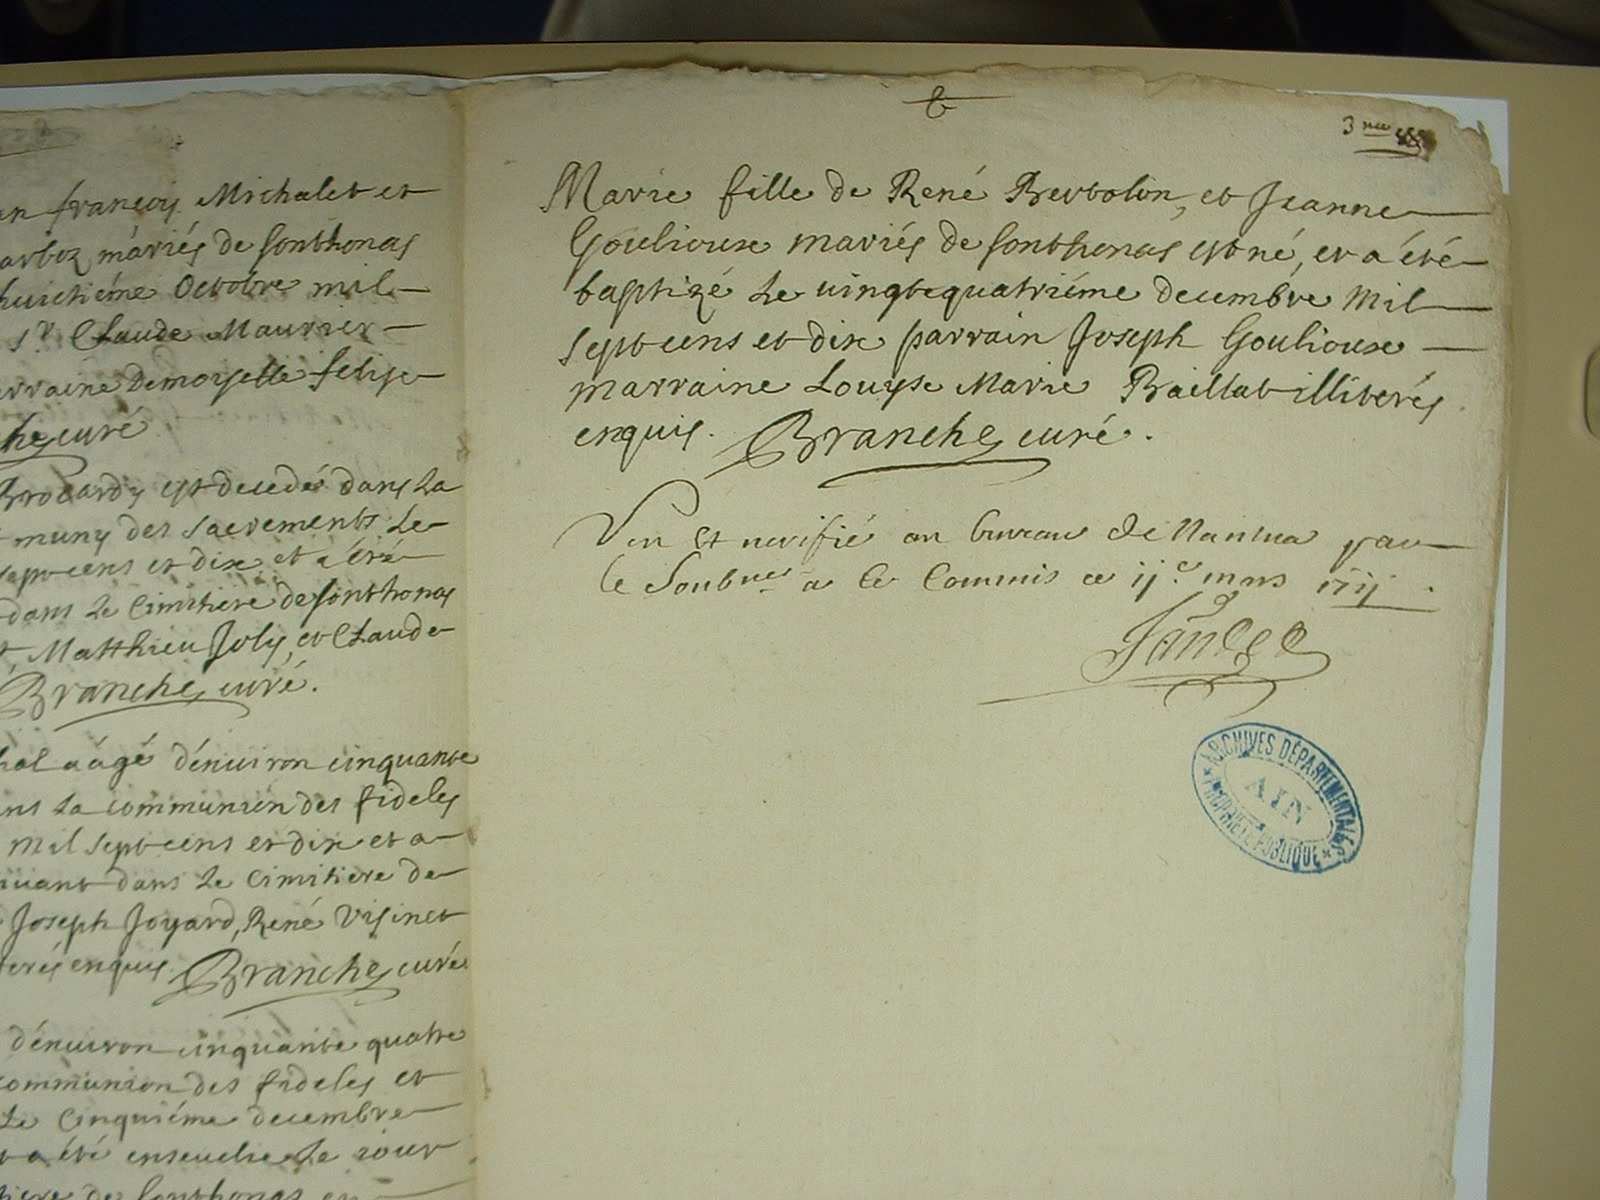 en françois Michalet et
mariés de sonthonas
huictiéme Octobre mil
Sr. Claude Maurier
marraine Demoiselle felise
curé
Brocard est decedé dans la
muny des sacrements le
sept cens et dix et a été
dans le Cimitiere de sonthonas
Matthieu Joly, et Claude
Branche curé.
aâgé dénuiron cinquante
dans la communion des fideles
mil sept cens et dix et a
suiuant dans le Cimitiere de
Joseph Joyard, René Visinet
enquis Branche curé
dénuiron cinquante quatre
communion des fideles et
le Cinquiéme decembre
a été enseuelie le iour
de sonthonas
3
Marie fille de René Bertolon, et Jeanne
Gouliouse mariés de sonthonas est né, et a été
baptizé le uingtequatriéme decembre mil
sept cens et dix parrain Joseph Gouliouse
marraine Louyse Marie Baillat illiterés
enquis. Branche curé.
Veu et uerifié au bureau de Nantua par
le Soubne. a le Commis ce 11e. mars 1711.
ARCHIVES DÉPARTEMENTALES
AIN
PROPRIÉTÉ PUBLIQUE